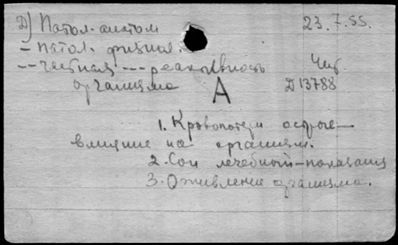 Д) Патол. анатом 23.7.55.
- патол. физиол.
-- лечебная --- реактивность Чит
организма А Д13788
1. Кровопотери острые -
влияние на организм.
2. Сон лечебный - показания
3. Оживление организма.